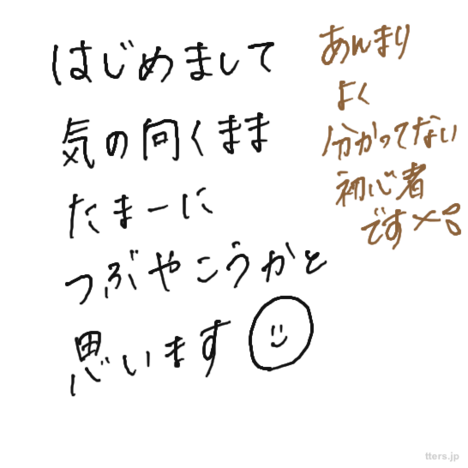 はじめまして
気の向くまま
たまーに
つぶやこうかと
思います
あんまり
よく
分かってない
初心者
です
tters.jp